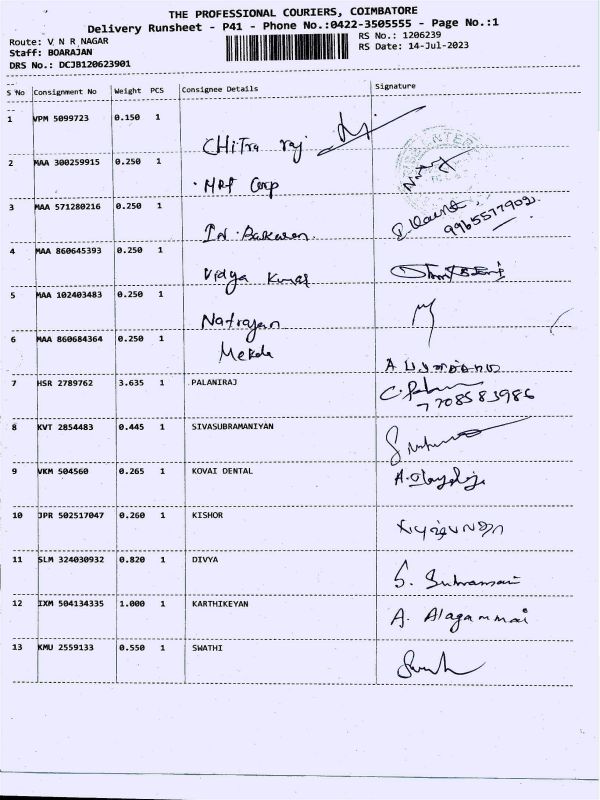 THE PROFESSIONAL COURIERS, COIMBATORE
Delivery Runsheet - P41 - Phone No.:0422-3505555 - Page No.:1
Route: V N R NAGAR
RS No.: 1206239
Staff: BOARAJAN
RS Date: 14-Jul-2023
DRS No.: DCJB120623901
S No Consignment No Weight PCS Consignee Details Signature
1 VPM 5099723 0.150 1
CHiTra raj
2 MAA 300259915 0.250 1
MRF Corp
3 MAA 571280216 0.250 1
9965577902
4 MAA 860645393 0.250 1
Vidya Kumar
5 MAA 102403483 0.250 1
Natrajan
6 MAA 860684364 0.250 1
Mekala
7 HSR 2789762 3.635 1 PALANIRAJ
7708583986
8 KVT 2854483 0.445 1 SIVASUBRAMANIYAN
9 VKM 504560 0.265 1 KOVAI DENTAL
10 JPR 502517047 0.260 1 KISHOR
11 SLM 324030932 0.820 1 DIVYA
12 IXM 504134335 1.000 1 KARTHIKEYAN
A. Alagammai
13 KMU 2559133 0.550 1 SWATHI